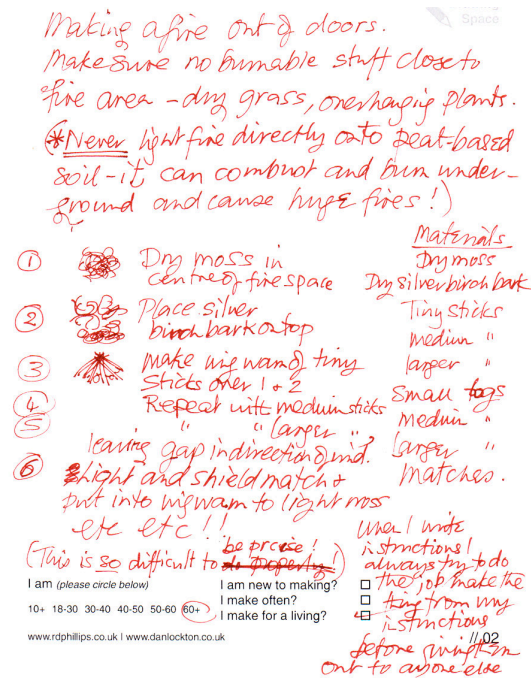 Space
Making a fire out of doors.
Make sure no burnable stuff close to
fire area - dry grass, overhanging plants.
(*Never light fire directly onto peat-based
soil - it can combust and burn under-
ground and cause huge fires!)
Materials
① Dry moss in
centre of fire space
② Place silver
birch bark on top
③ Make wigwam of tiny
sticks over 1 & 2
④ Repeat with medium sticks
⑤ " " (larger ")
leaving gap in direction of wind.
⑥ Light and shield match &
put into wigwam to light moss
etc etc!!
(This is so difficult to be precise!)
Dry moss
Dry silver birch bark
Tiny sticks
medium "
larger "
Small logs
medium "
larger "
matches.
When I write
instructions I
always try to do
the job/make the
thing from my
instructions
before giving them
out to anyone else
I am (please circle below)
10+ 18-30 30-40 40-50 50-60 60+
I am new to making?
I make often?
I make for a living?
www.rdphillips.co.uk | www.danlockton.co.uk
//02